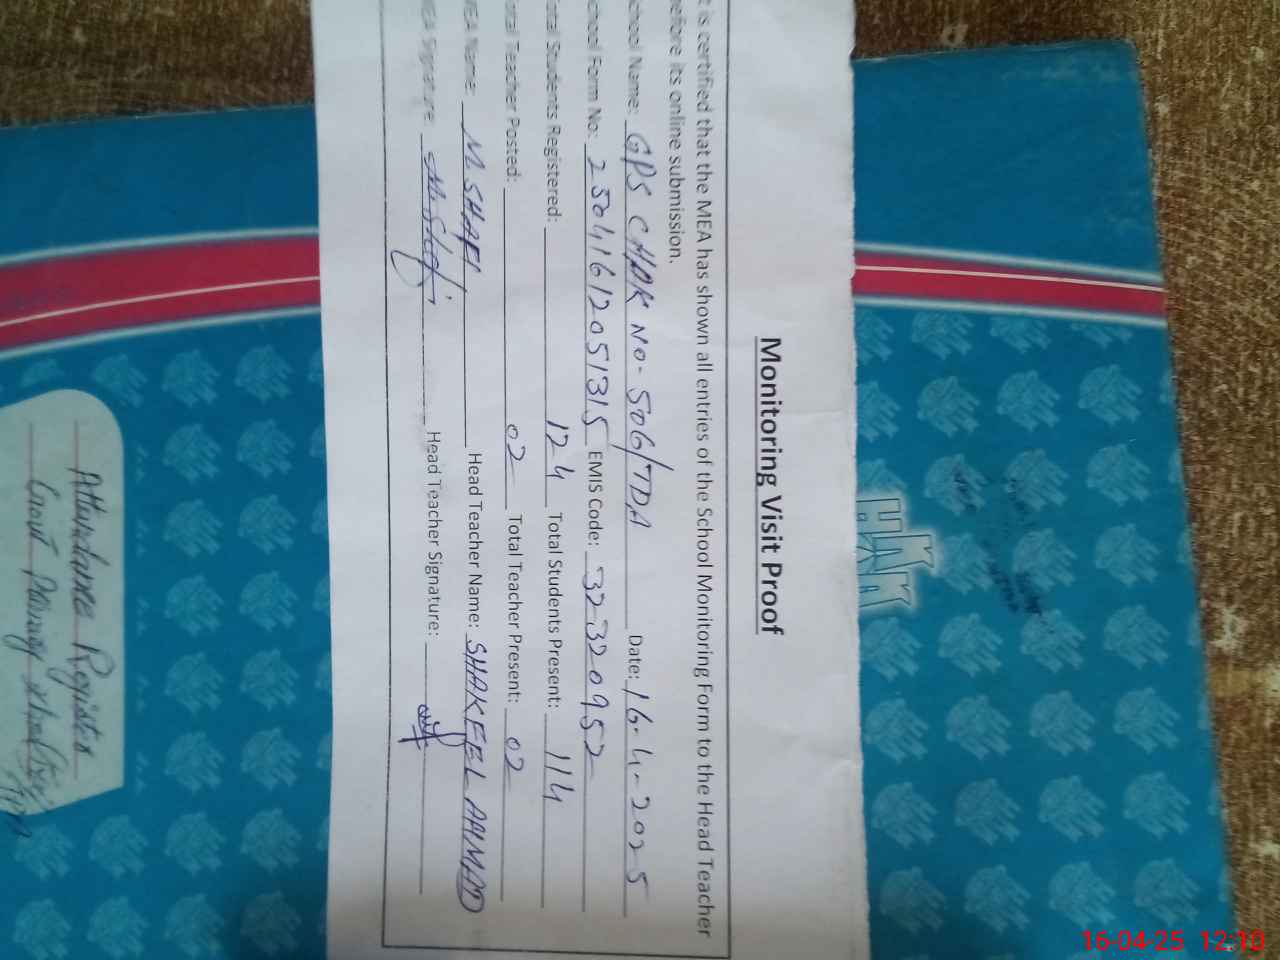 Monitoring Visit Proof
t is certified that the MEA has shown all entries of the School Monitoring Form to the Head Teacher
before its online submission.
School Name: GPS CHAK NO- 506/TDA Date: 16-4-2025
School Form No: 25041612051315 EMIS Code: 32320952
Total Students Registered: 124 Total Students Present: 114
Total Teacher Posted: 02 Total Teacher Present: 02
MEA Name: M. SHAFI Head Teacher Name: SHAKEEL AHMAD
MEA Signature: M. Shafi Head Teacher Signature:
Attendance Register
Govt Primary School
16-04-25 12:10